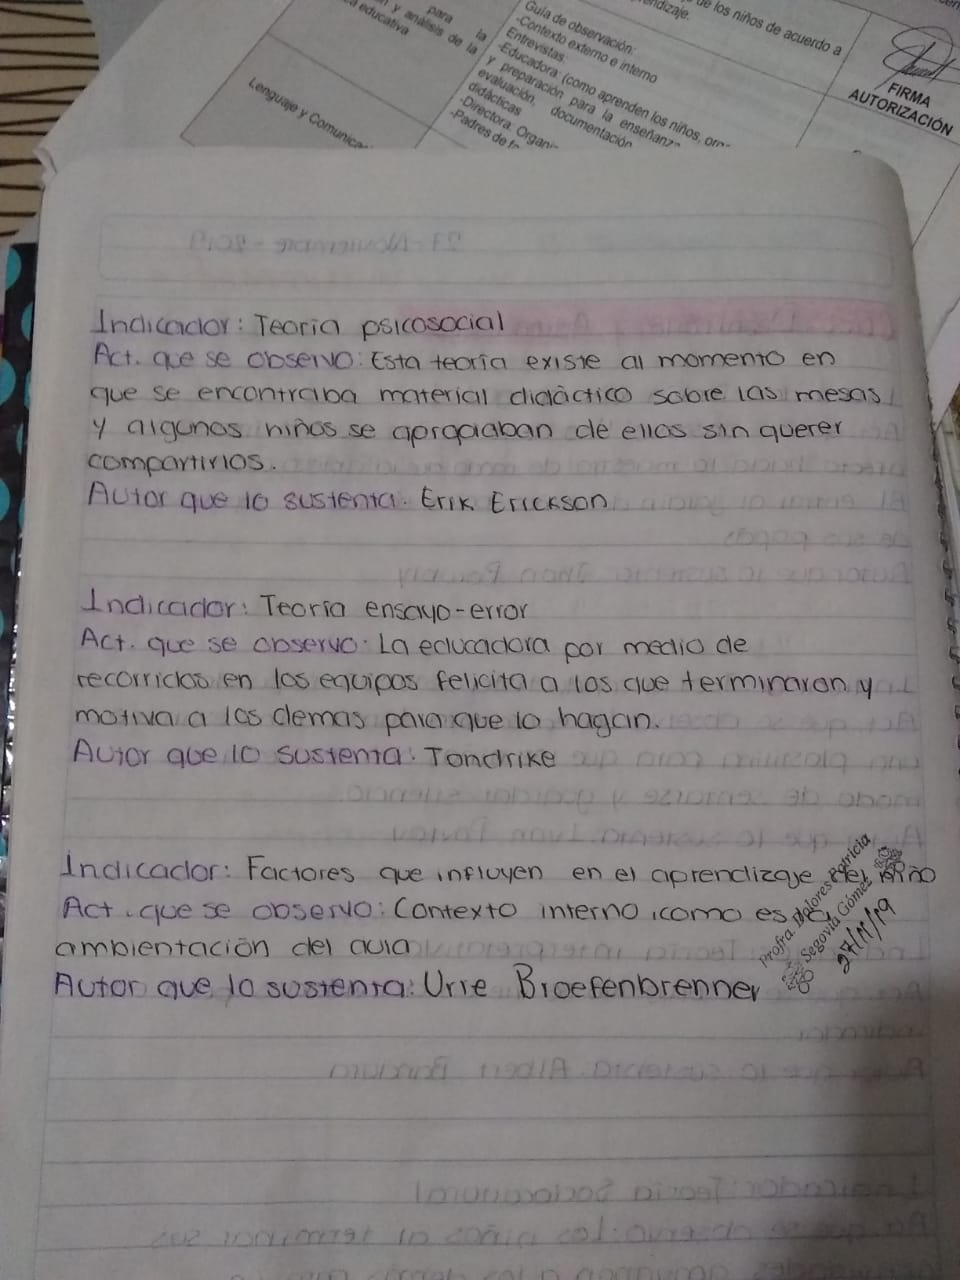 para la
y análisis de la
educativa
Guía de observación:
-Contexto externo e interno
Entrevistas:
-Educadora: (como aprenden los niños,
y preparación para la enseñanz
evaluación, documentación
didácticas
-Directora: Organi
-Padres de
Lenguaje y Comunica
de los niños de acuerdo a
FIRMA
AUTORIZACIÓN
Indicador: Teoría psicosocial
Act. que se observo: Esta teoría existe al momento en
que se encontraba material didáctico sobre las mesas
y algunos niños se apropiaban de ellos sin querer
compartirlos.
Autor que lo sustenta: Erik Erickson
Indicador: Teoría ensayo-error
Act. que se observo: La educadora por medio de
recorridos en los equipos felicita a los que terminaron y
motiva a los demas para que lo hagan.
Autor que lo sustenta: Tondrike
Indicador: Factores que influyen en el aprendizaje del niño
Act. que se observo: Contexto interno como es la
ambientación del aula
Autor que lo sustenta: Urie Broefenbrenner
Profra. Dolores Patricia
Segovia Gómez
27/11/19